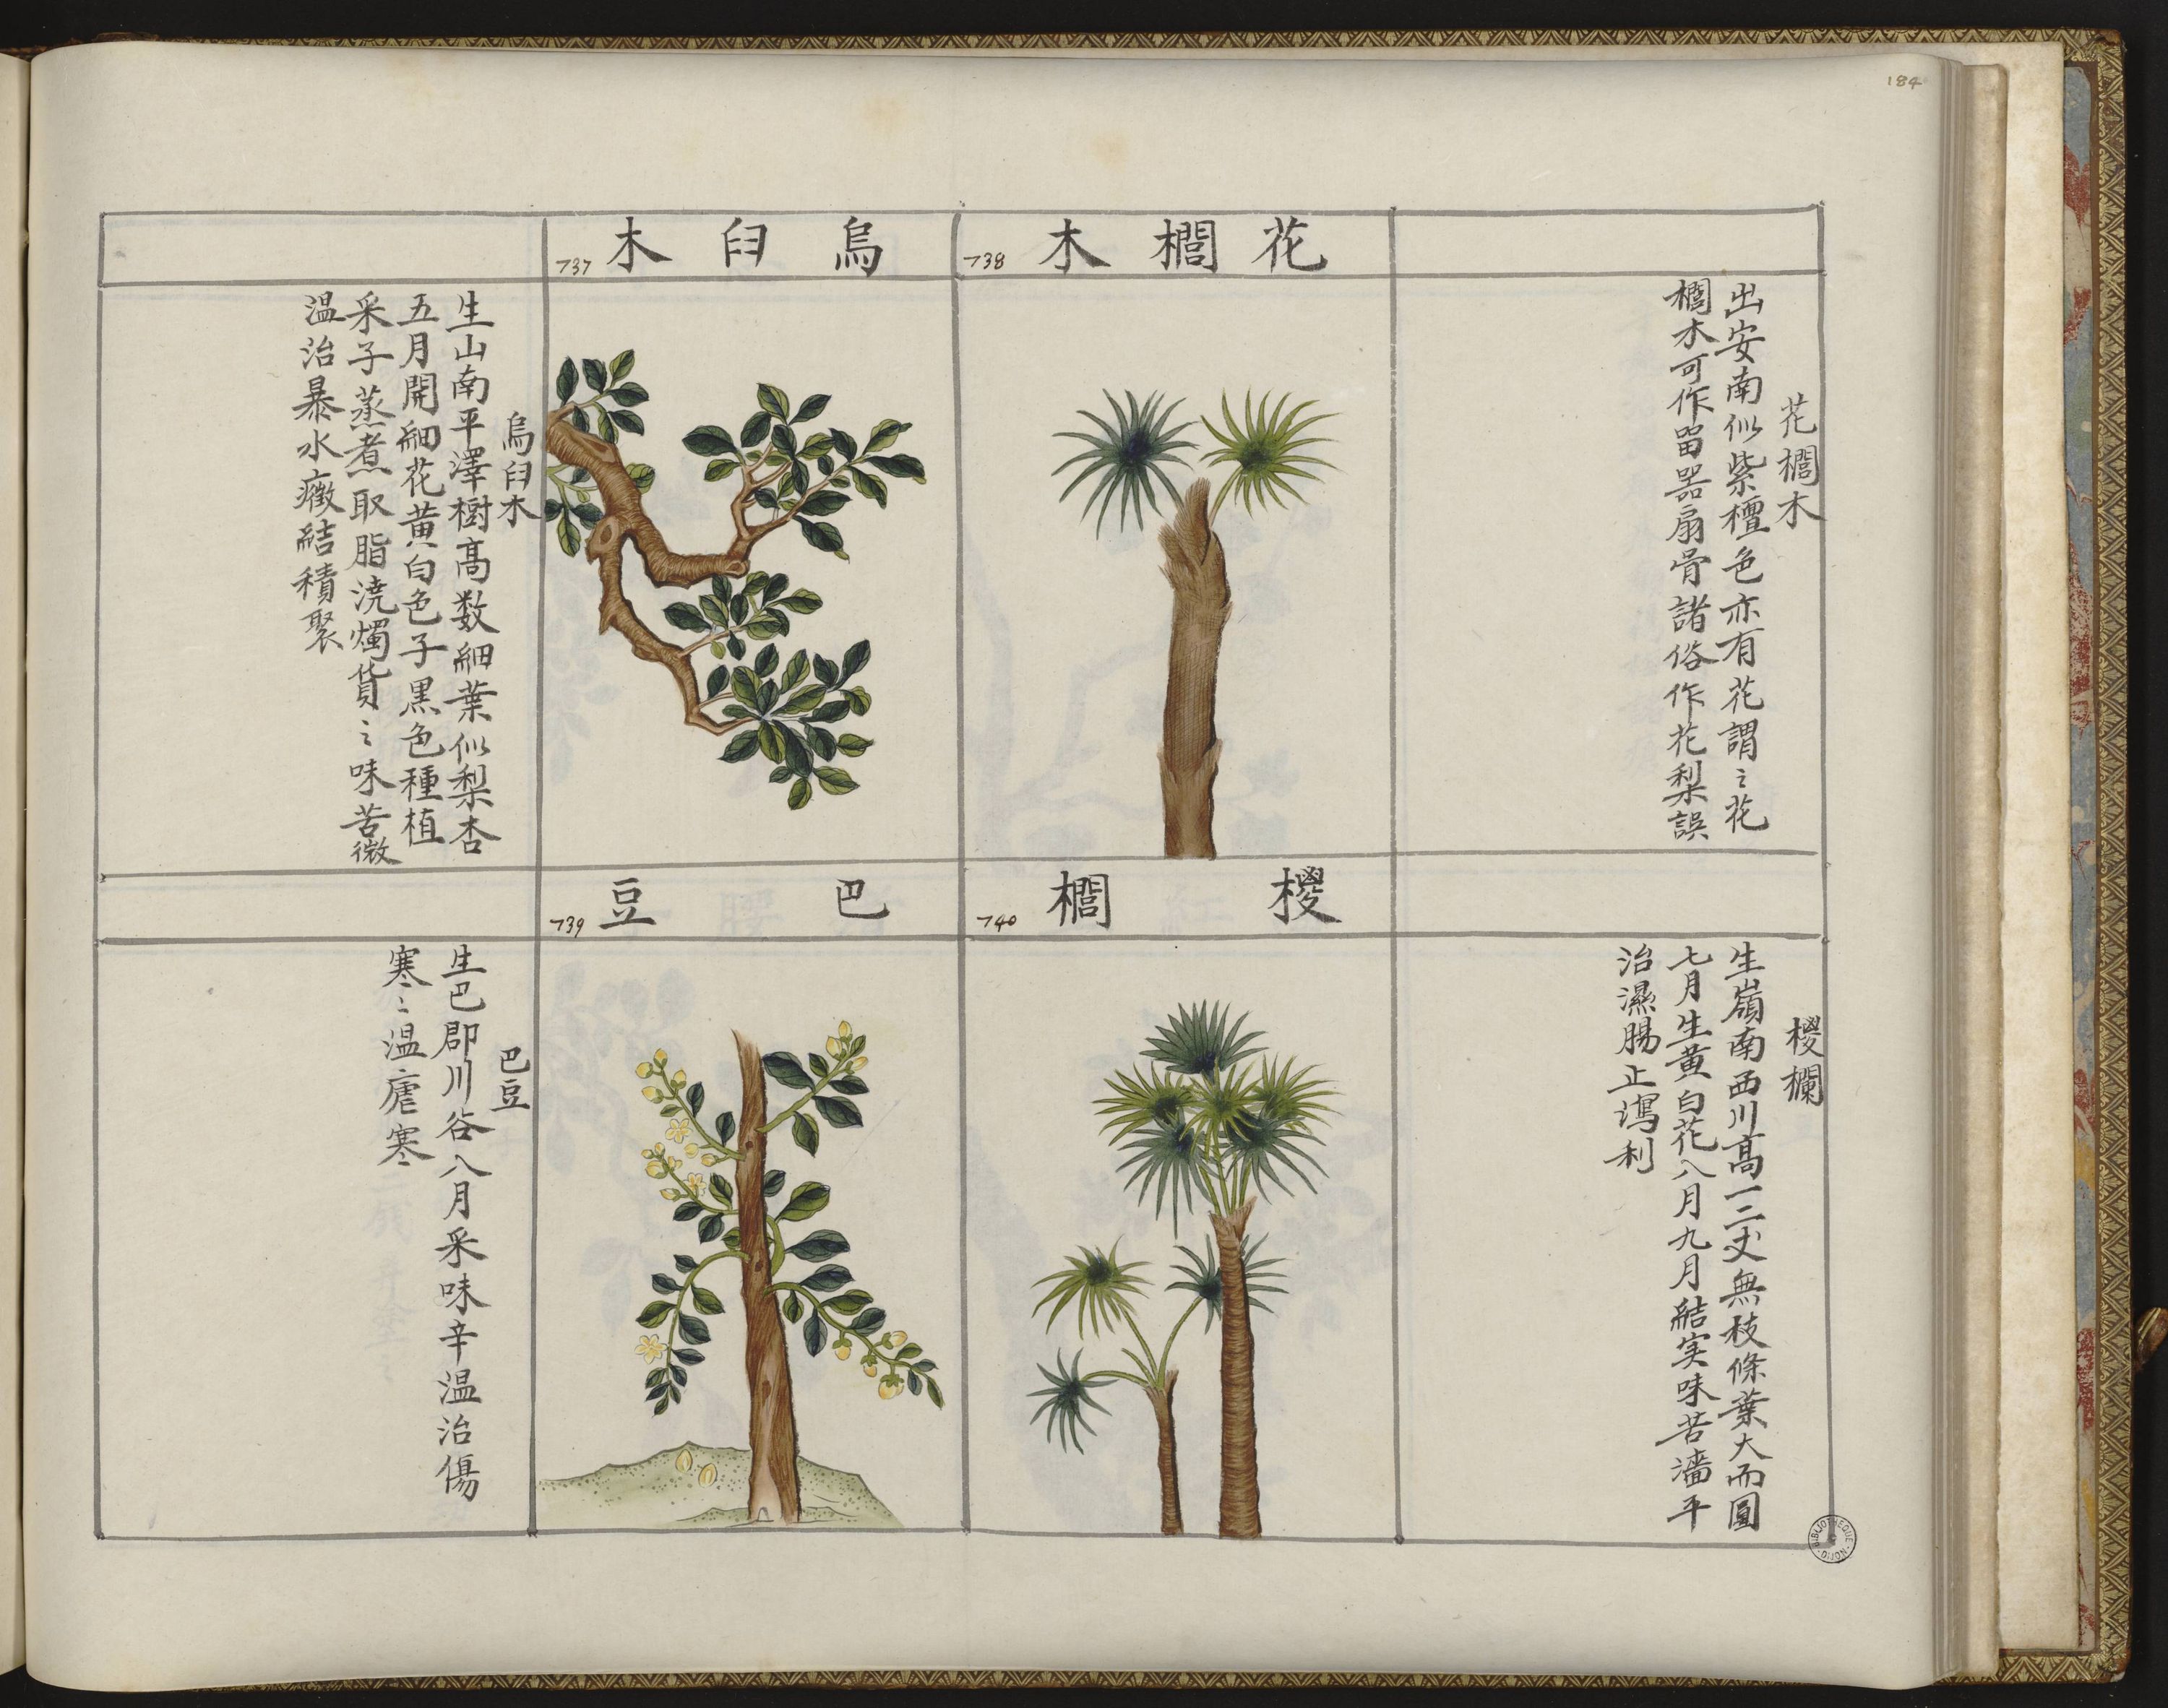 184
花櫚木
738
花櫚木
出安南似紫檀色亦有花謂之花
櫚木可作噐扇骨諸俗作花梨誤
烏臼木
737
烏臼木
生山南平澤樹髙数細葉似梨杏
五月開細花黄白色子黒色種植
采子蒸煮取脂澆燭貨之味苦微
温治暴水癥結積聚
椶櫚
740
椶欄
生嶺南西川髙一二丈無枝條葉大而圓
七月生黄白花八月九月結実味苦濇平
治濕腸止瀉利
巴豆
739
巴豆
生巴郡川谷八月采味辛温治傷
寒寒温瘧寒
BIBLIOTHEQUE